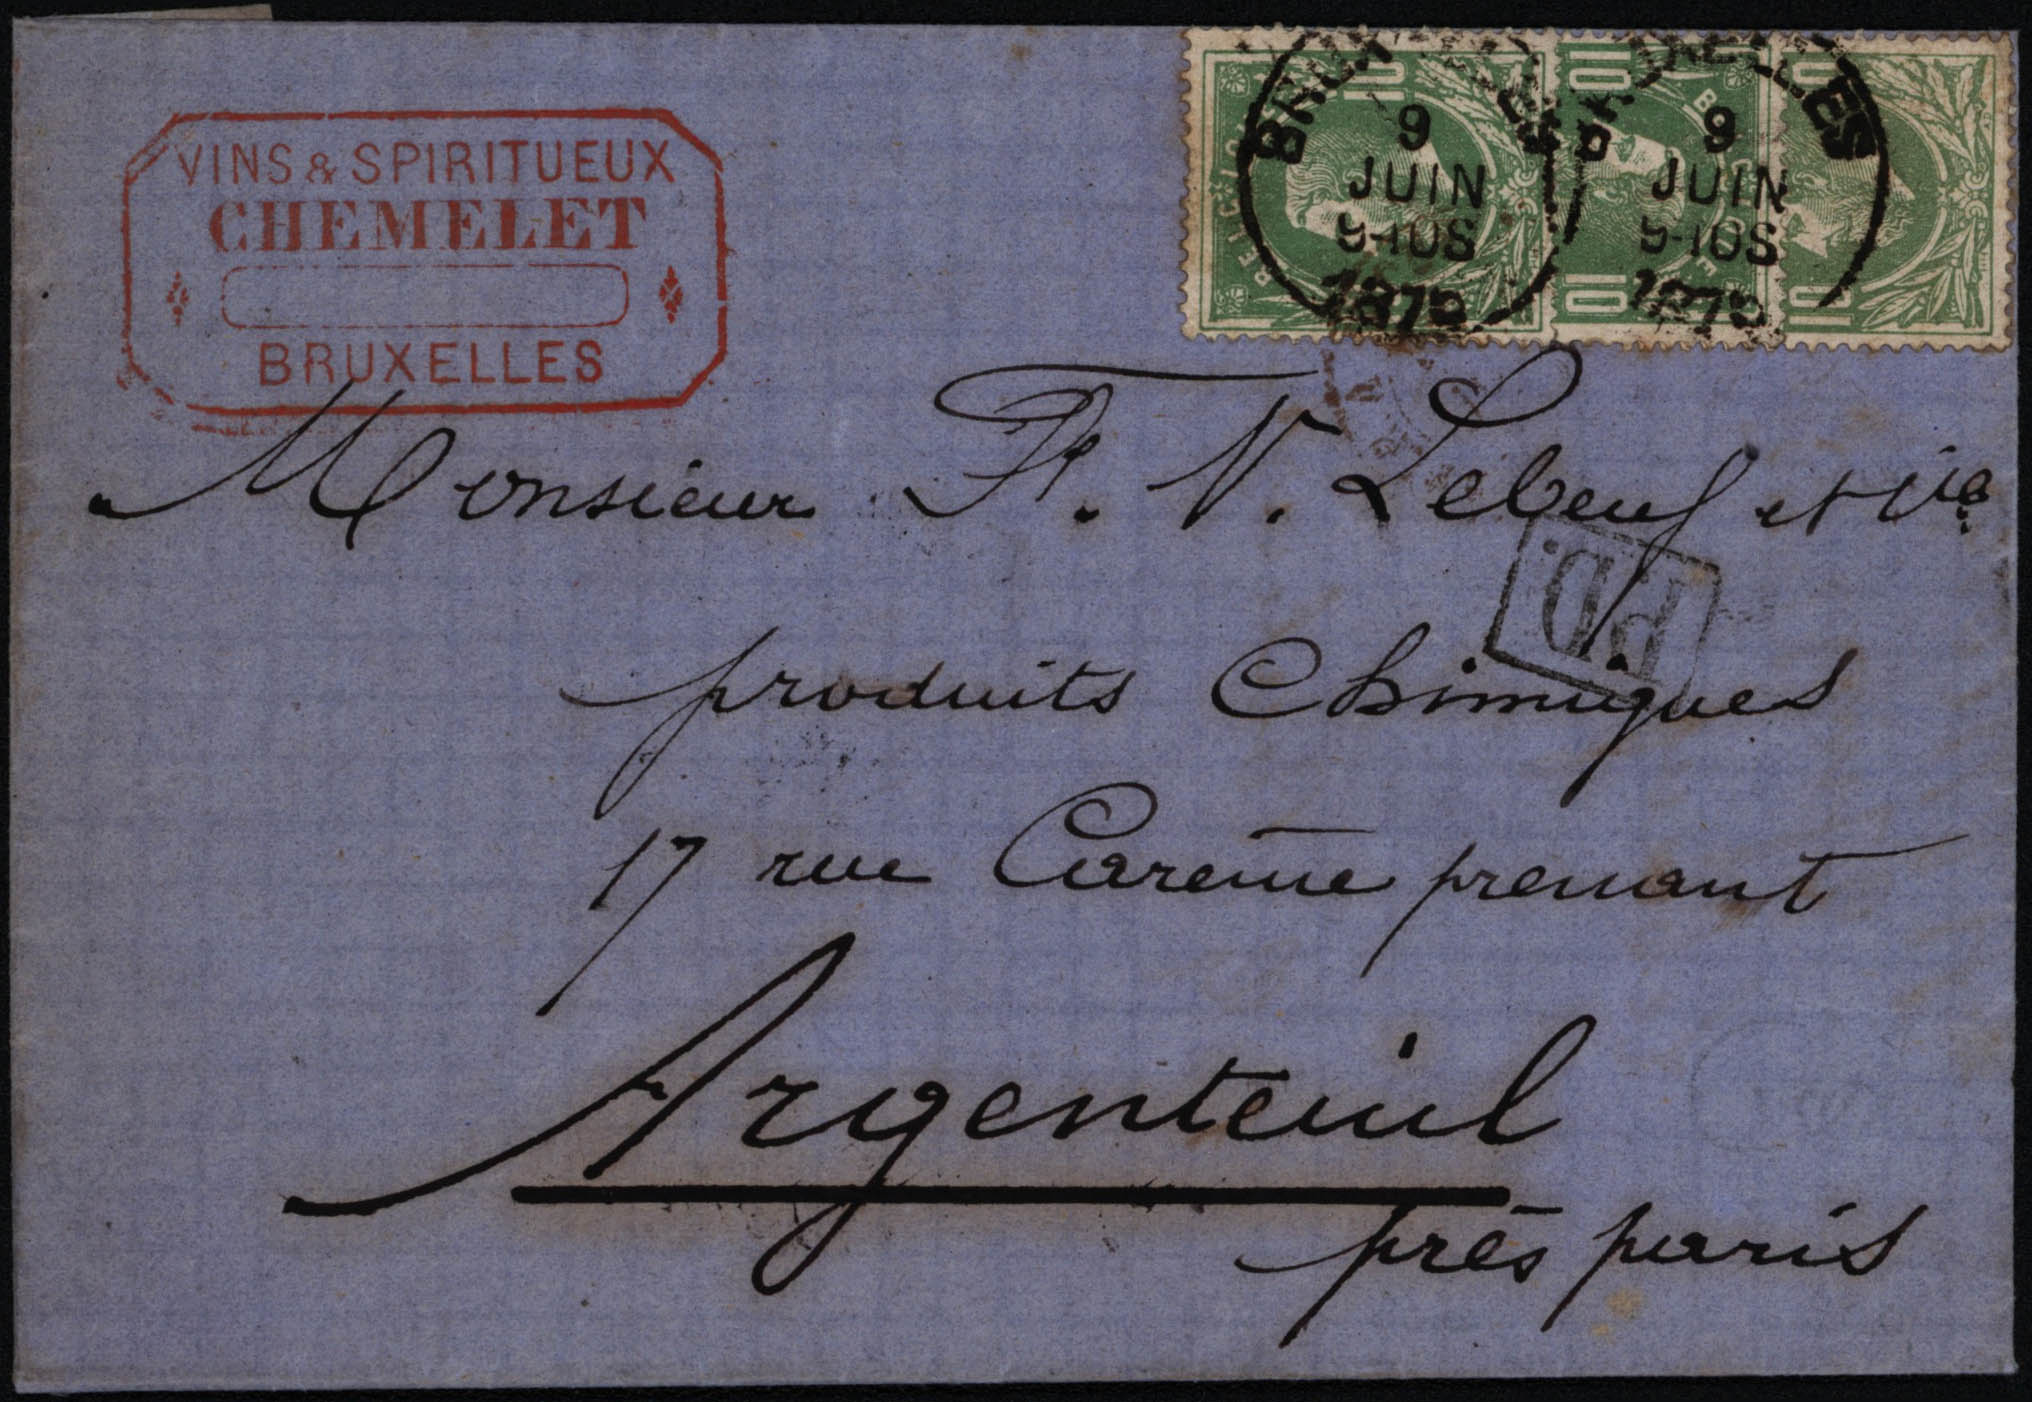 VINS & SPIRITUEUX
CHEMELET
BRUXELLES
BRUXELLES
9
JUIN
9-10S
BRUXELLES
9
JUIN
9-10S
10
10
10
10
10
P.D.
Monsieur Fr. V. Lebeuf et Cie.
produits Chimiques
17 rue Carême prenant
Argenteuil
près paris